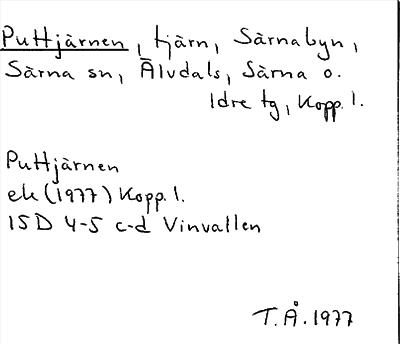 Puttjärnen, tjärn, Särnabyn,
Särna sn, Älvdals, Särna o.
Idre tg, Kopp. l.
Puttjärnen
ek (1977) Kopp. l.
15D 4-5 c-d Vinvallen
T.Å. 1977